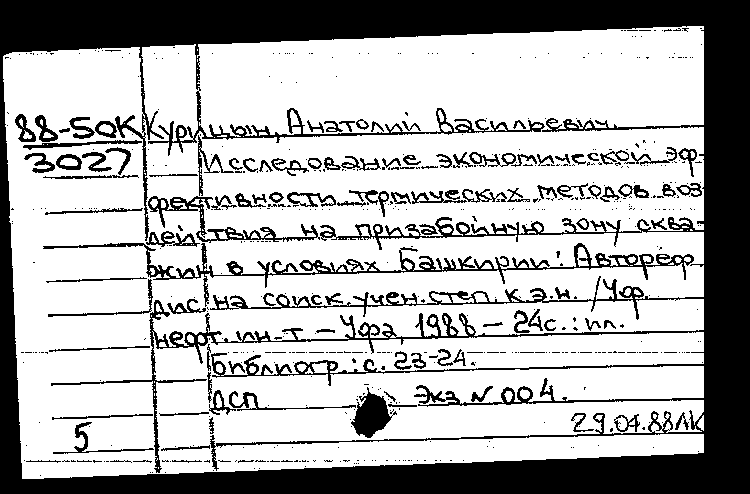 88-50К Курицын, Анатолий Васильевич.
3027 Исследование экономической эф-
фективности термических методов воз-
действия на призабойную зону сква-
жин в условиях Башкирии: Автореф.
дис. на соиск. учен. степ. к.э.н. / Уф.
нефт. ин-т. – Уфа, 1988 – 24с.: ил.
Библиогр.: с. 23-24.
ДСП Экз. N 004.
5 29.04.88ЛК